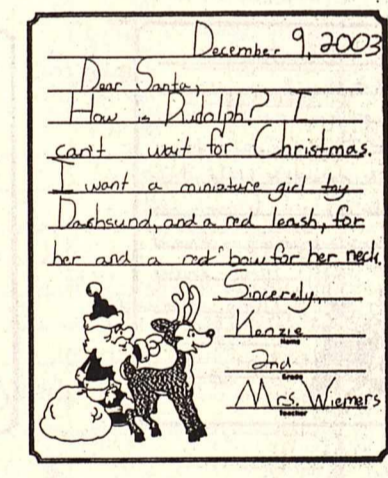 December 9, 2003
Dear Santa,
How is Rudolph? I
can't wait for Christmas.
I want a miniature girl toy
Dachsund, and a red leash, for
her and a red bow for her neck.
Sincerely,
Kenzie
Name
2nd
Grade
Mrs. Wiemers
Teacher